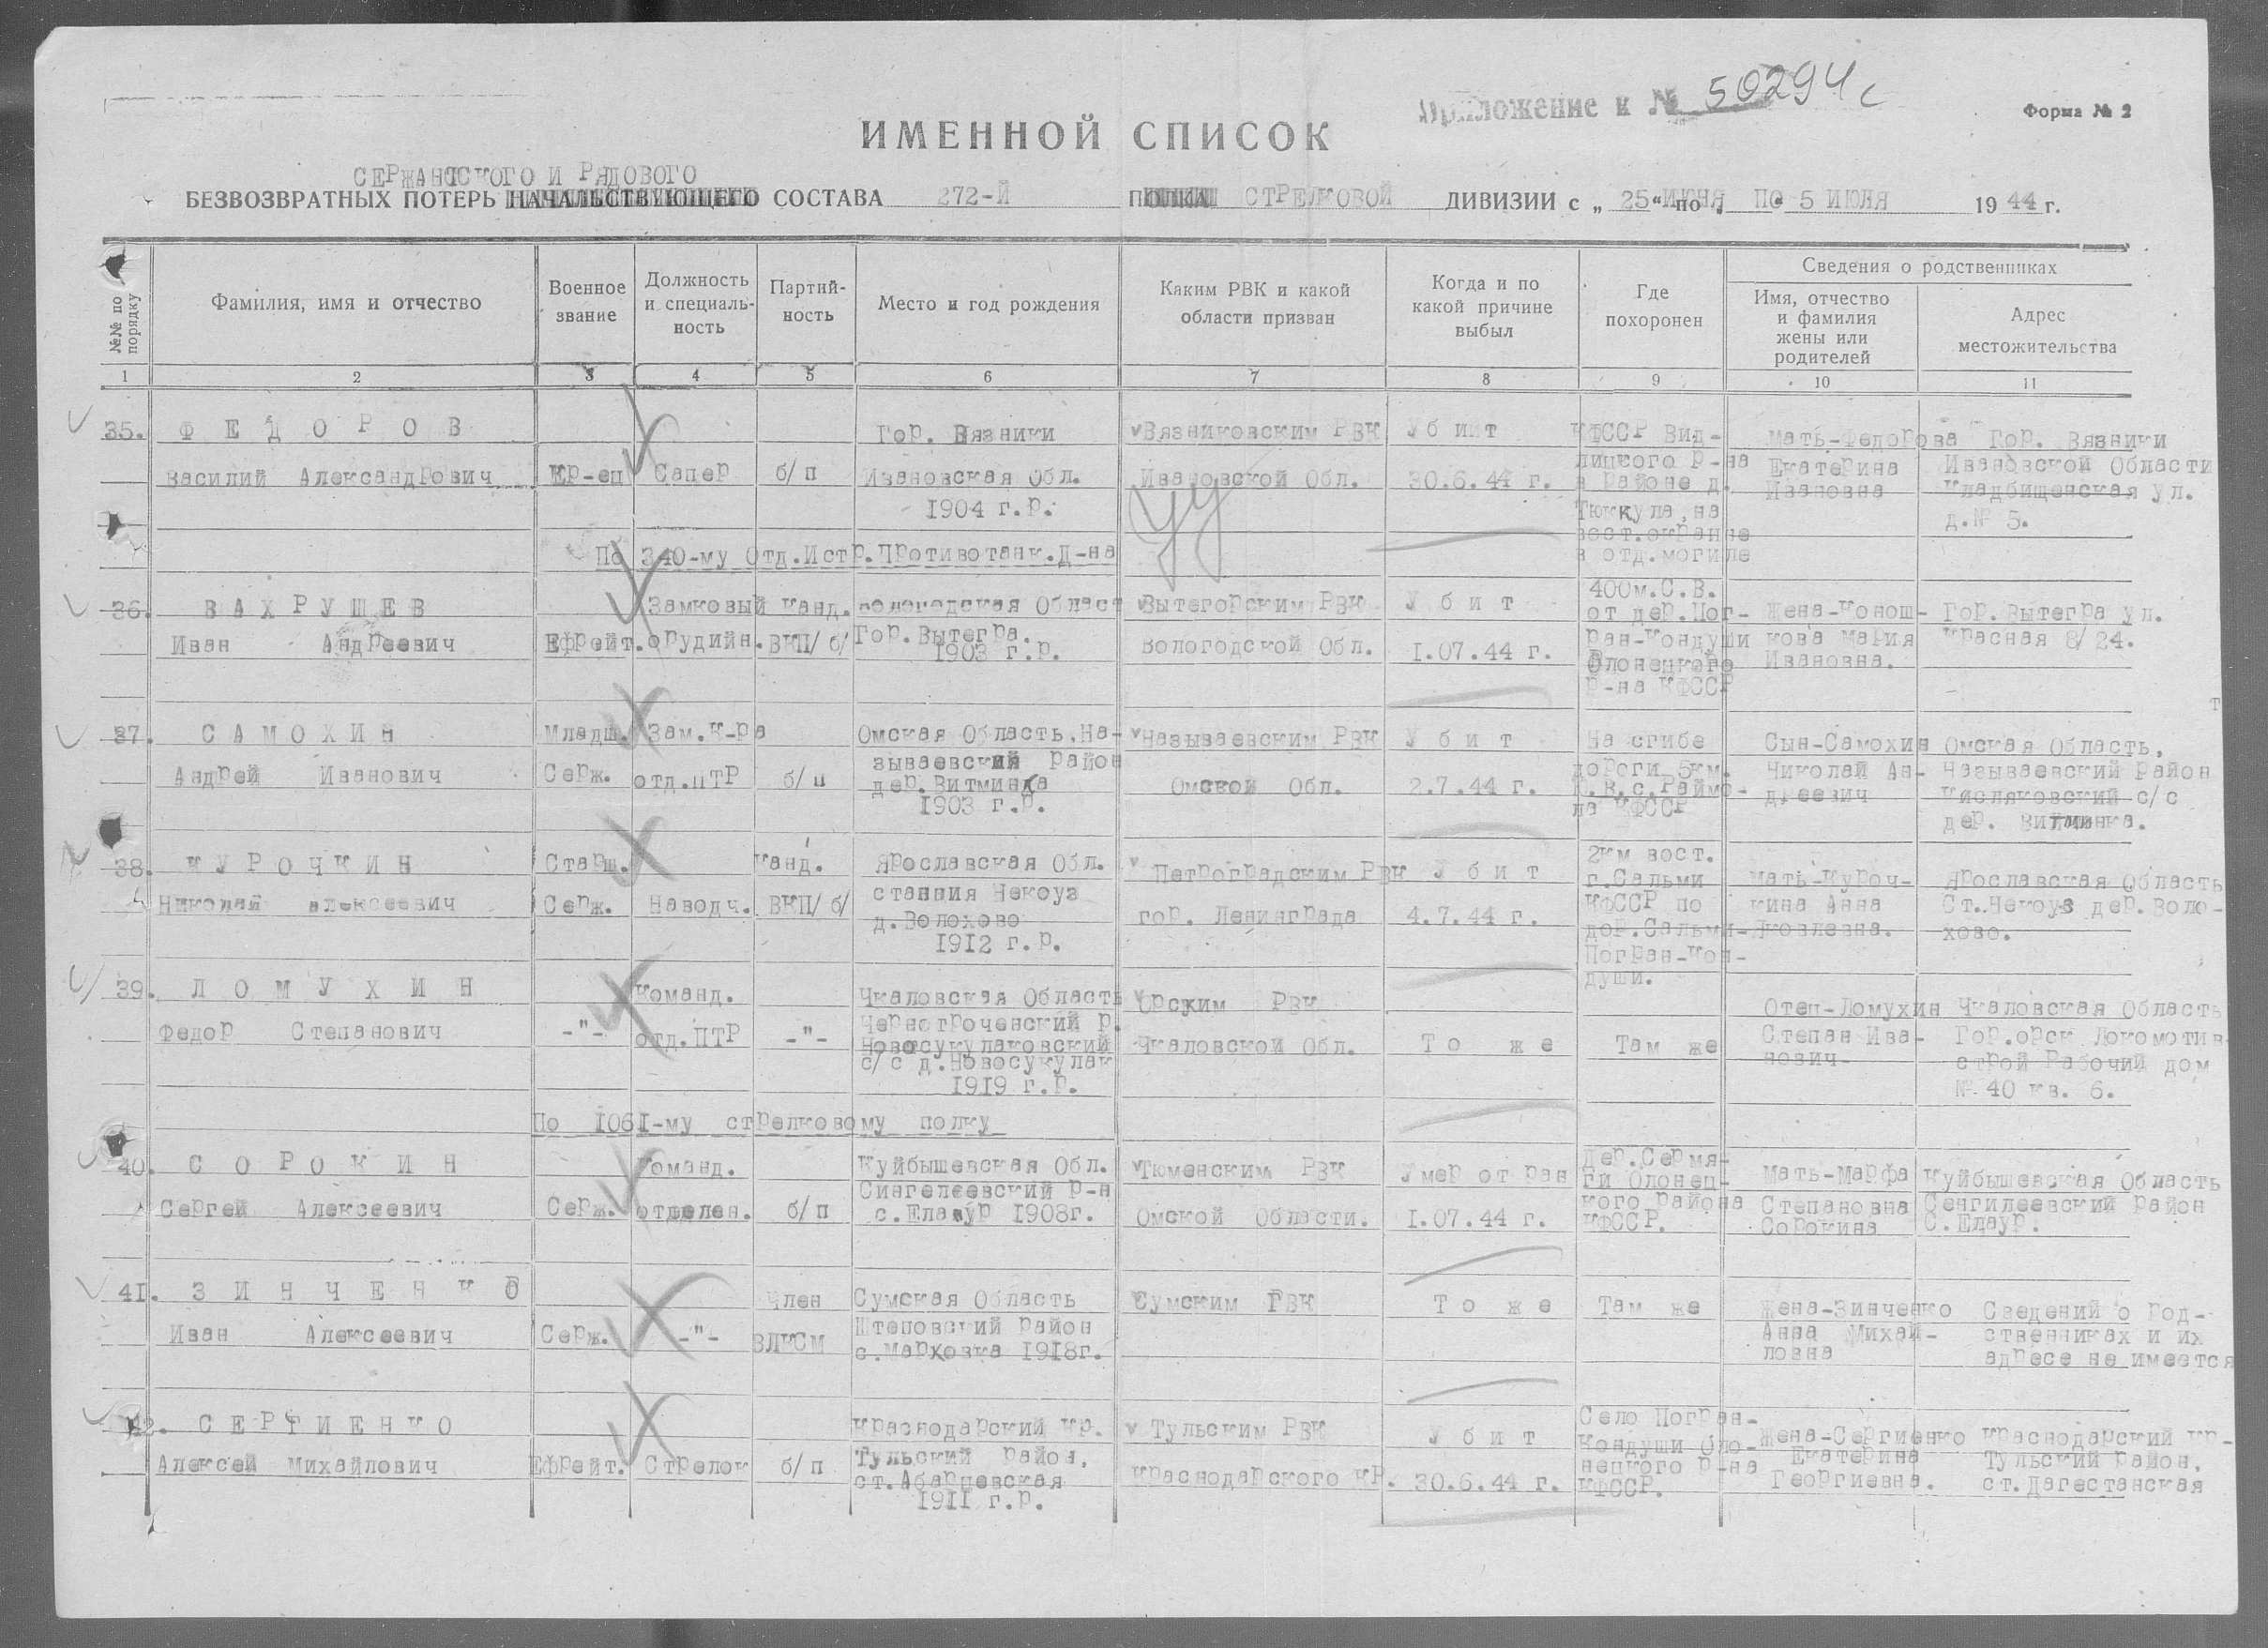 Приложение к № 50294с
Форма № 2
ИМЕННОЙ СПИСОК
СЕРЖАНТСКОГО И РЯДОВОГО
БЕЗВОЗВРАТНЫХ ПОТЕРЬ НАЧАЛЬСТВУЮЩЕГО СОСТАВА 272-Й ПОЛКА СТРЕЛКОВОЙ ДИВИЗИИ с „25“ ИЮНЯ по ПО 5 ИЮЛЯ 1944 г.
№№ по порядку
Фамилия, имя и отчество
Военное звание
Должность и специаль-ность
Партий-ность
Место и год рождения
Каким РВК и какой области призван
Когда и по какой причине выбыл
Где похоронен
Сведения о родственниках
Имя, отчество и фамилия жены или родителей
Адрес местожительства
1 2 3 4 5 6 7 8 9 10 11
35. ФЕДОРОВ
Василий Александрович
Ер-ец
Сапер
б/п
Гор. Вязники
Ивановская Обл.
1904 г.р.
Вязниковским РВК
Ивановской Обл.
Убит
30.6.44 г.
КФССР Вид-
лицкого р-на
в районе д.
Тюккула, на
вост.окраине
в отд.могиле
Мать-Федорова
Екатерина
Ивановна
Гор. Вязники
Ивановской Области
Кладбищенская ул.
д.№ 5.
По 340-му Отд.Истр.Противотанк.Д-на
36. ВАХРУШЕВ
Иван Андреевич
Ефрейт.
Замковый
орудийн.
канд.
ВКП/б/
Вологодская Област
Гор.Вытегра.
1903 г.р.
Вытегорским РВК
Вологодской Обл.
Убит
1.07.44 г.
400м.С.В.
от дер.Пог-
ран-Кондуши
Олонецкого
р-на КФССР
Жена-Конош-
кова Мария
Ивановна.
Гор.Вытегра ул.
Красная 8/24.
37. САМОХИН
Андрей Иванович
Младш.
Серж.
Зам.К-ра
отд.ПТР
б/п
Омская Область.На-
зываевский район
дер.Витминка
1903 г.р.
Называевским РВК
Омской Обл.
Убит
2.7.44 г.
На сгибе
дороги 5км.
Ю.В.с.Раймо-
ла КФССР
Сын-Самохин
Николай Ан-
дреевич
Омская Область,
Называевский район
Кисляковский с/с
дер. Витминка.
38. КУРОЧКИН
Николай Алексеевич
Старш.
Серж.
Наводч.
Канд.
ВКП/б/
Ярославская Обл.
станция Некоуз
д.Волохово
1912 г.р.
Петроградским РВК
гор. Ленинграда
Убит
4.7.44 г.
2км вост.
г.Сальми
КФССР по
дор.Сальми-
Погран-Кон-
души.
Мать-Куроч-
кина Анна
Яковлевна.
Ярославская Область
Ст.Некоуз дер.Воло-
хово.
39. ЛОМУХИН
Федор Степанович
-"-
Команд.
отд.ПТР
-"-
Чкаловская Область
Чернотроченский р.
Новосукулаковский
с/с д.Новосукулак
1919 г.р.
Орским РВК
Чкаловской Обл.
То же
Там же
Отец-Ломухин
Степан Ива-
нович-
Чкаловская Область
Гор.Орск Локомотив
строй Рабочий дом
№ 40 кв. 6.
По 1061-му стрелковому полку
40. СОРОКИН
Сергей Алексеевич
Серж.
Команд.
отделен.
б/п
Куйбышевская Обл.
Сингелеевский р-н
с.Елаур 1908г.
Тюменским РВК
Омской Области.
Умер от ран
1.07.44 г.
Дер.Сермя-
ги Олонец-
кого района
КФССР.
Мать-Марфа
Степановна
Сорокина
Куйбышевская Область
Сенгилеевский район
С.Елаур.
41. ЗИНЧЕНКО
Иван Алексеевич
Серж.
-"-
Член
ВЛКСМ
Сумская Область
Штеповский район
с.Марковка 1918г.
Сумским РВК
То же
Там же
Жена-Зинченко
Анна Михай-
ловна
Сведений о род-
ственниках и их
адресе не имеется
42. СЕРГИЕНКО
Алексей Михайлович
Ефрейт.
Стрелок
б/п
Краснодарский кр.
Тульский район,
ст.Абарцевская
1911 г.р.
Тульским РВК
Краснодарского кр.
Убит
30.6.44 г.
Село Погран-
Кондуши Оло-
нецкого р-на
КФССР.
Жена-Сергиенко
Екатерина
Георгиевна.
Краснодарский кр-
Тульский район,
ст.Дагестанская